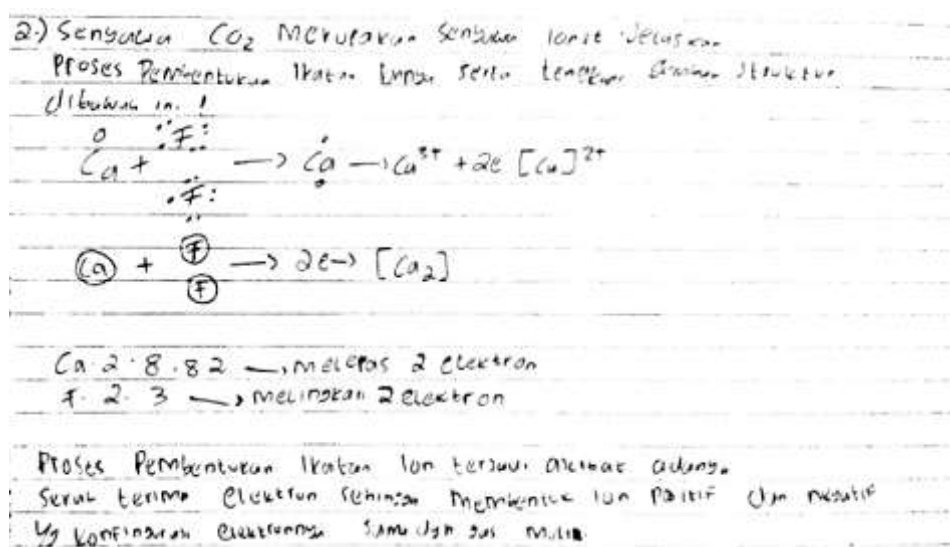 2.) Senyawa CO2 merupakan senyawa ionik Jelaskan
Proses Pembentukan Ikatan serta struktur
dibawah ini !
Ca + F F → Ca → Ca3+ + 2e [Ca]2+
Ca + F F → 2e → [Ca2]
Ca. 2. 8. 8 2 → melepas 2 elektron
F. 2. 3 → 2 elektron
Proses Pembentukan Ikatan Ion terjadi akibat adanya
serah terima elektron sehingga membentuk ion Positif dan negatif
yg konfigurasi elektronnya sama dgn gas mulia